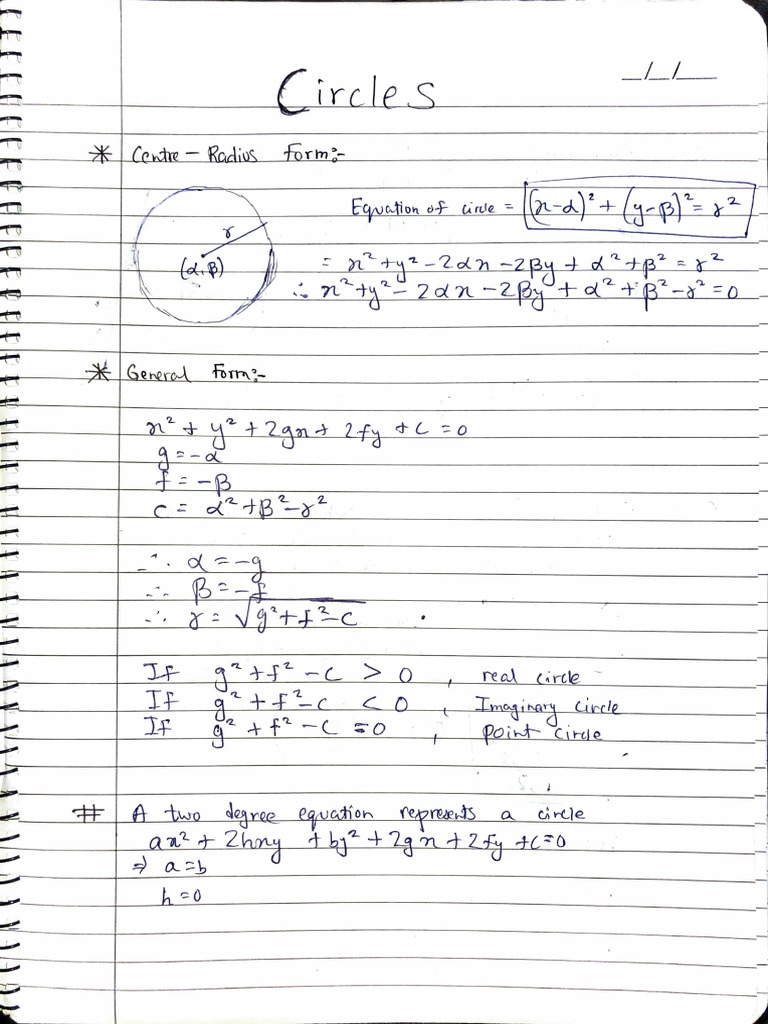 Circles
_/_/__
* Centre - Radius Form:-
Equation of circle = (x-α)² + (y-β)² = r²
r
(α, β)
= x² + y² - 2αx - 2βy + α² + β² = r²
∴ x² + y² - 2αx - 2βy + α² + β² - r² = 0
* General Form:-
x² + y² + 2gx + 2fy + c = 0
g = -α
f = -β
c = α² + β² - r²
∴ α = -g
∴ β = -f
∴ r = √(g² + f² - c)
If g² + f² - c > 0 , real circle
If g² + f² - c < 0 , Imaginary circle
If g² + f² - c = 0 , point circle
# A two degree equation represents a circle
ax² + 2hxy + by² + 2gx + 2fy + c = 0
⇒ a = b
h = 0